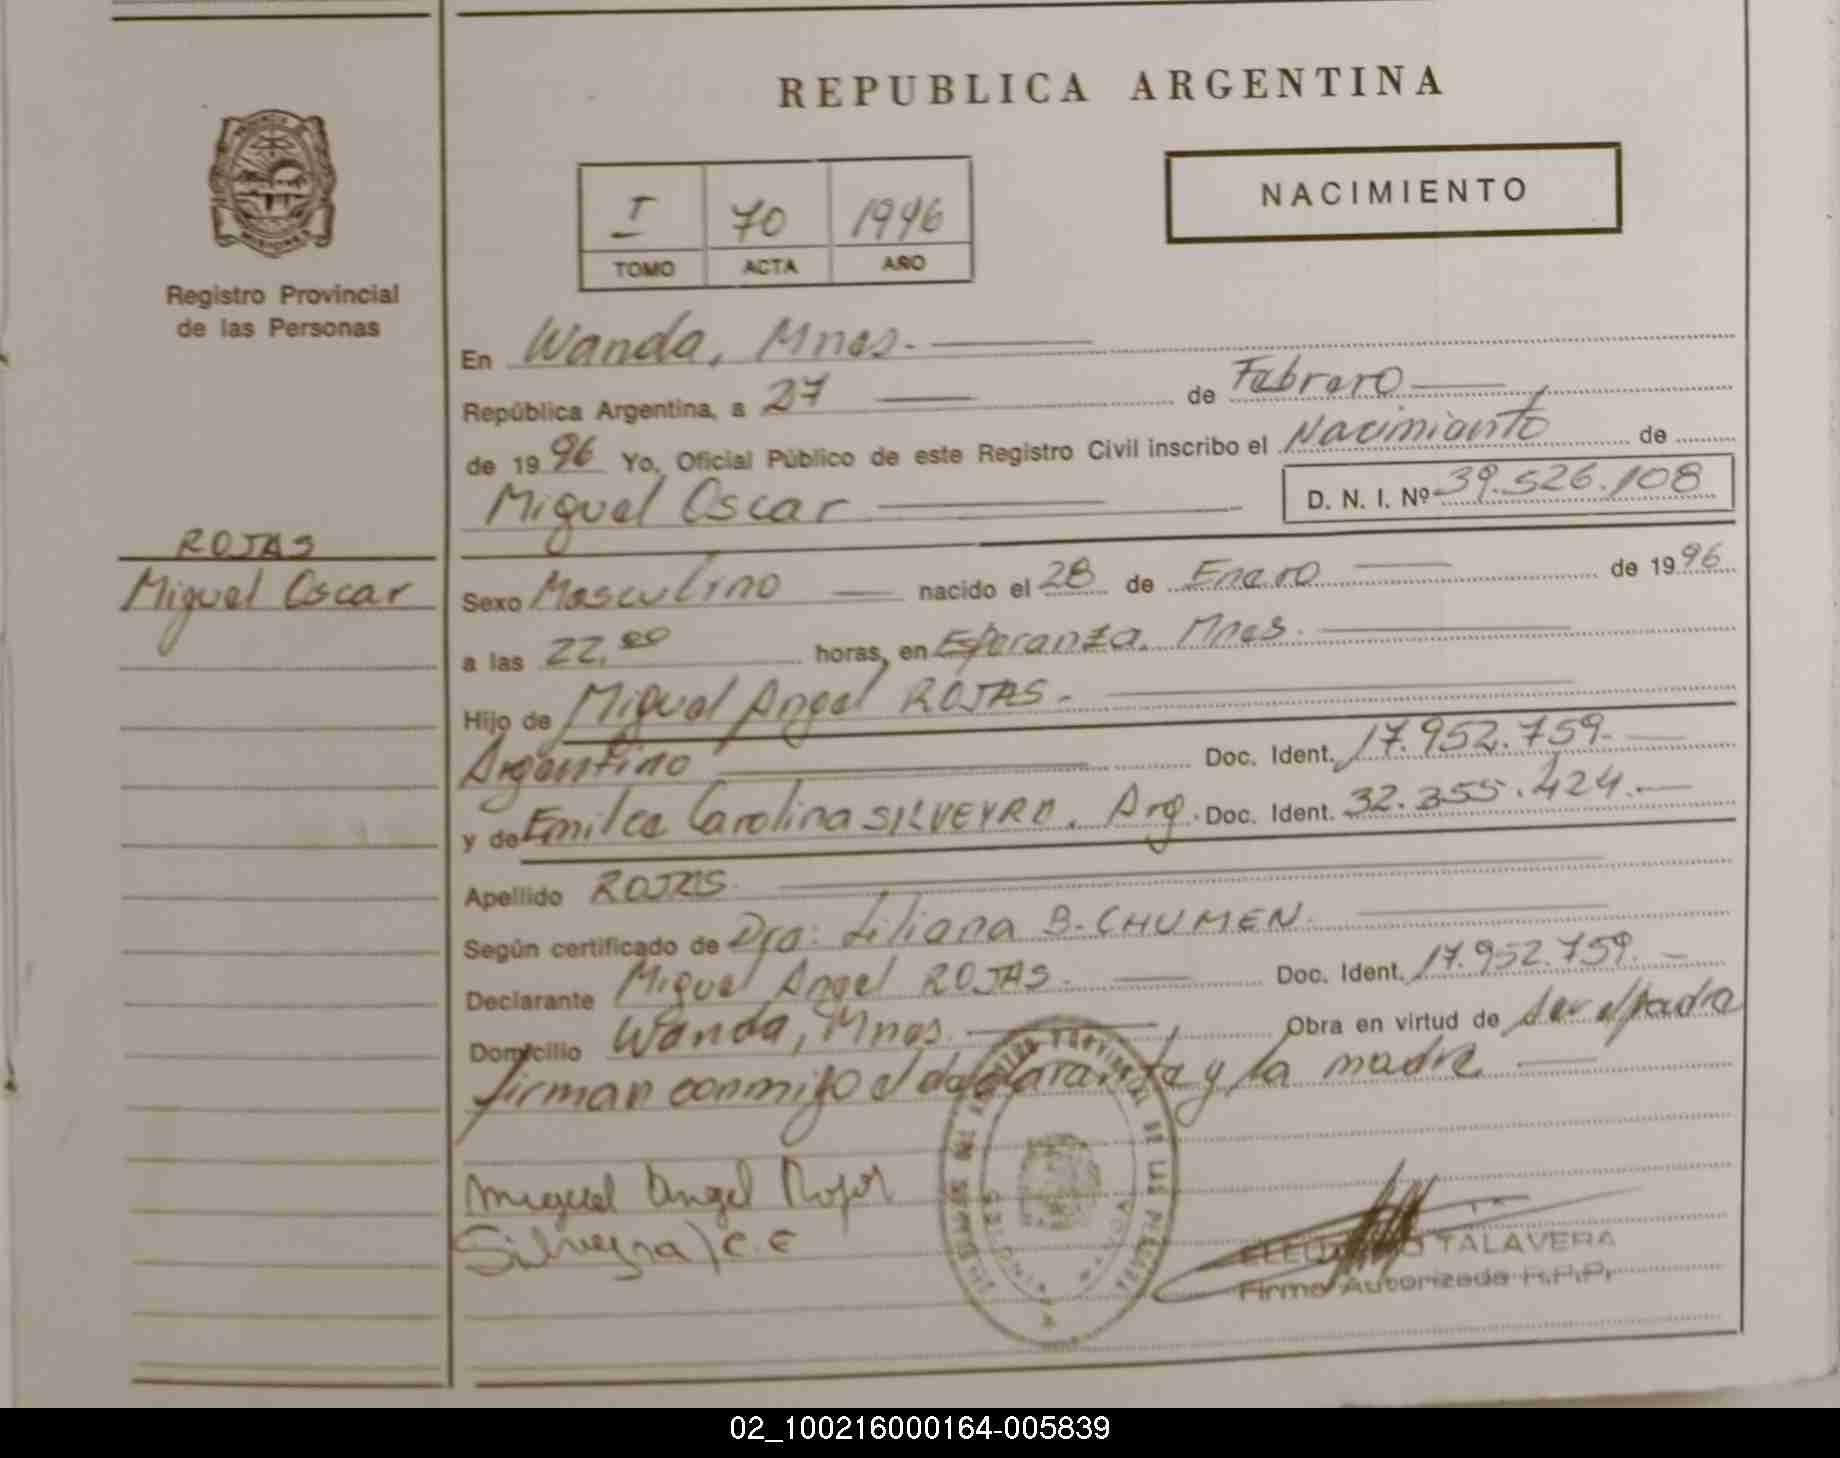 REPUBLICA ARGENTINA
NACIMIENTO
I 70 1996
TOMO ACTA AÑO
Registro Provincial
de las Personas
En Wanda, Mnes.
República Argentina, a 27 de Febrero
de 1996 Yo, Oficial Público de este Registro Civil inscribo el Nacimiento de
Miguel Oscar D. N. I. Nº 39.526.108
ROJAS
Miguel Oscar
Sexo Masculino nacido el 28 de Enero de 1996
a las 22,00 horas, en Esperanza, Mnes.
Hijo de Miguel Angel ROJAS.
Argentino Doc. Ident. 17.952.759.
y de Emilce Carolina SILVEYRA. Arg. Doc. Ident. 32.355.424.
Apellido ROJAS
Según certificado de Dra: Liliana B. CHUMEN.
Declarante Miguel Angel ROJAS. Doc. Ident. 17.952.759.
Domicilio Wanda, Mnes. Obra en virtud de ser el padre
firman conmigo el declarante y la madre
Miguel Angel Rojas
Silveyra C. E
TALAVERA
Firma Autorizada R.P.P.
02_100216000164-005839